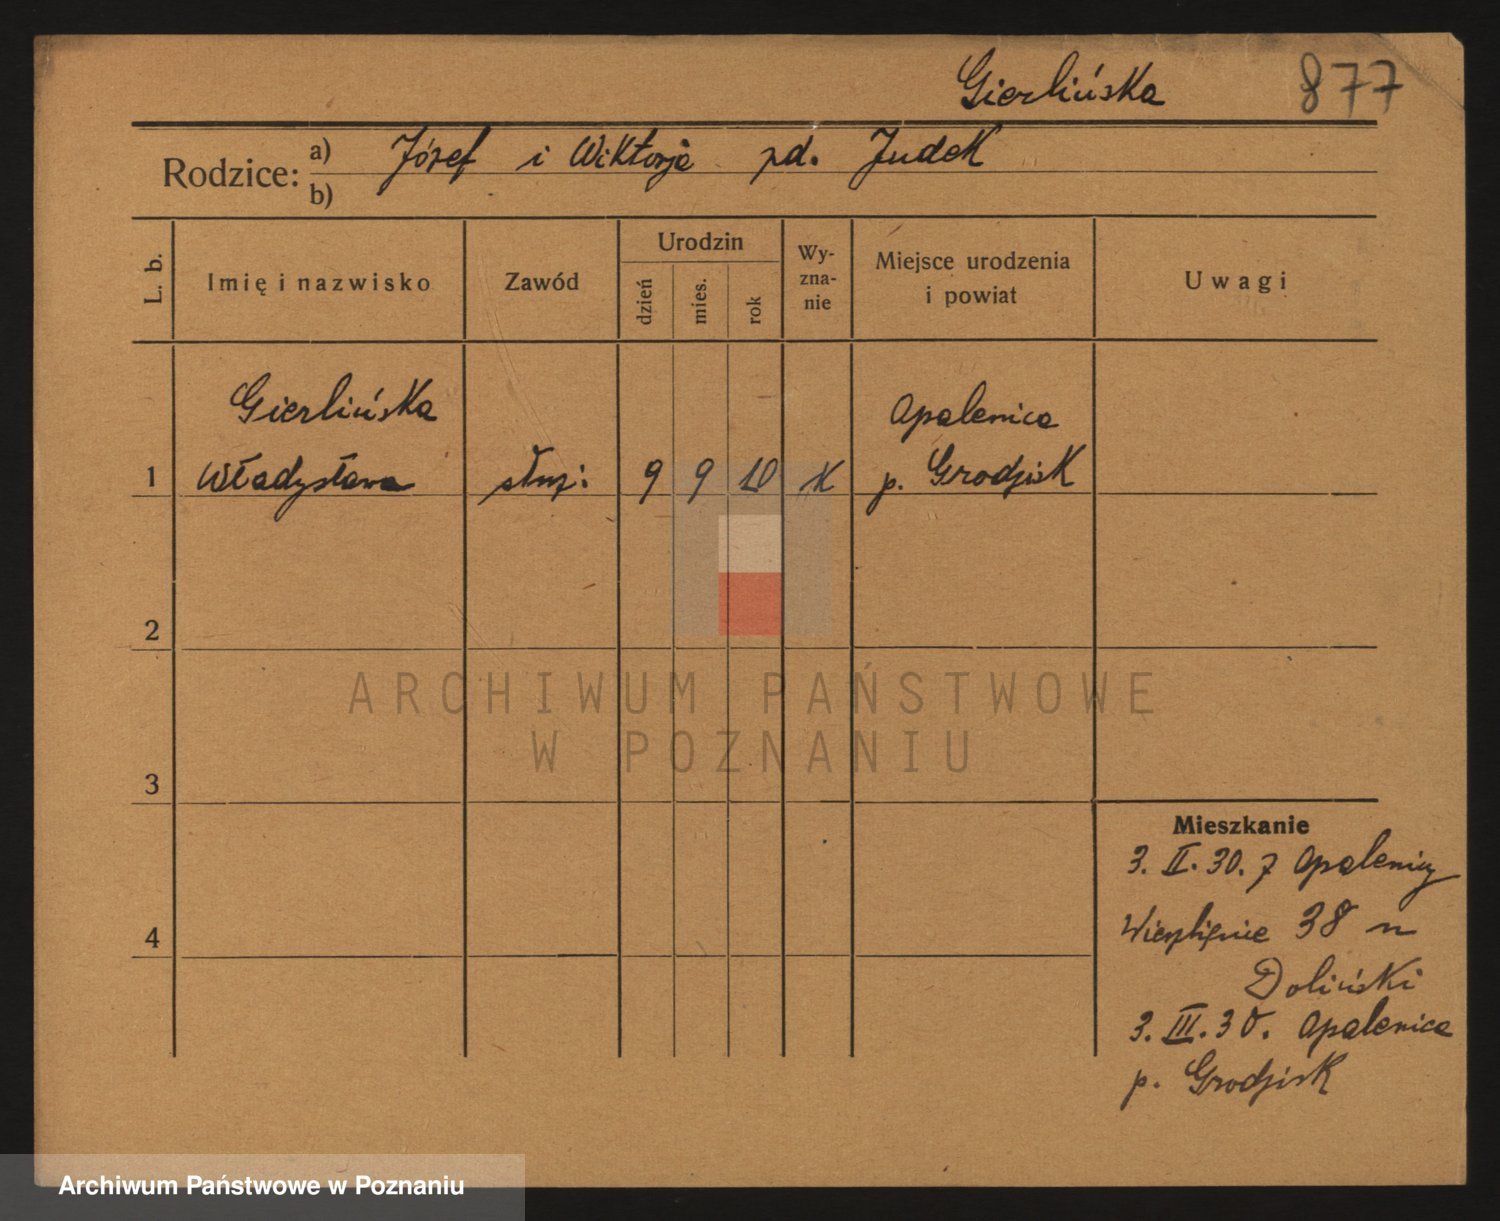 Gierlińska 877
Rodzice: a) Józef i Wiktorja zd. Judek
b)
L. b. Imię i nazwisko Zawód Urodzin dzień mies. rok Wyznanie Miejsce urodzenia i powiat Uwagi
Gierlińska Opalenica
1 Władysława służ: 9 9 10 K p. Grodzisk
2
ARCHIWUM PAŃSTWOWE
W POZNANIU
3
Mieszkanie
3. II. 30. z Opalenicy
4 38 m
Doliński
3. III. 30. Opalenica
p. Grodzisk
Archiwum Państwowe w Poznaniu